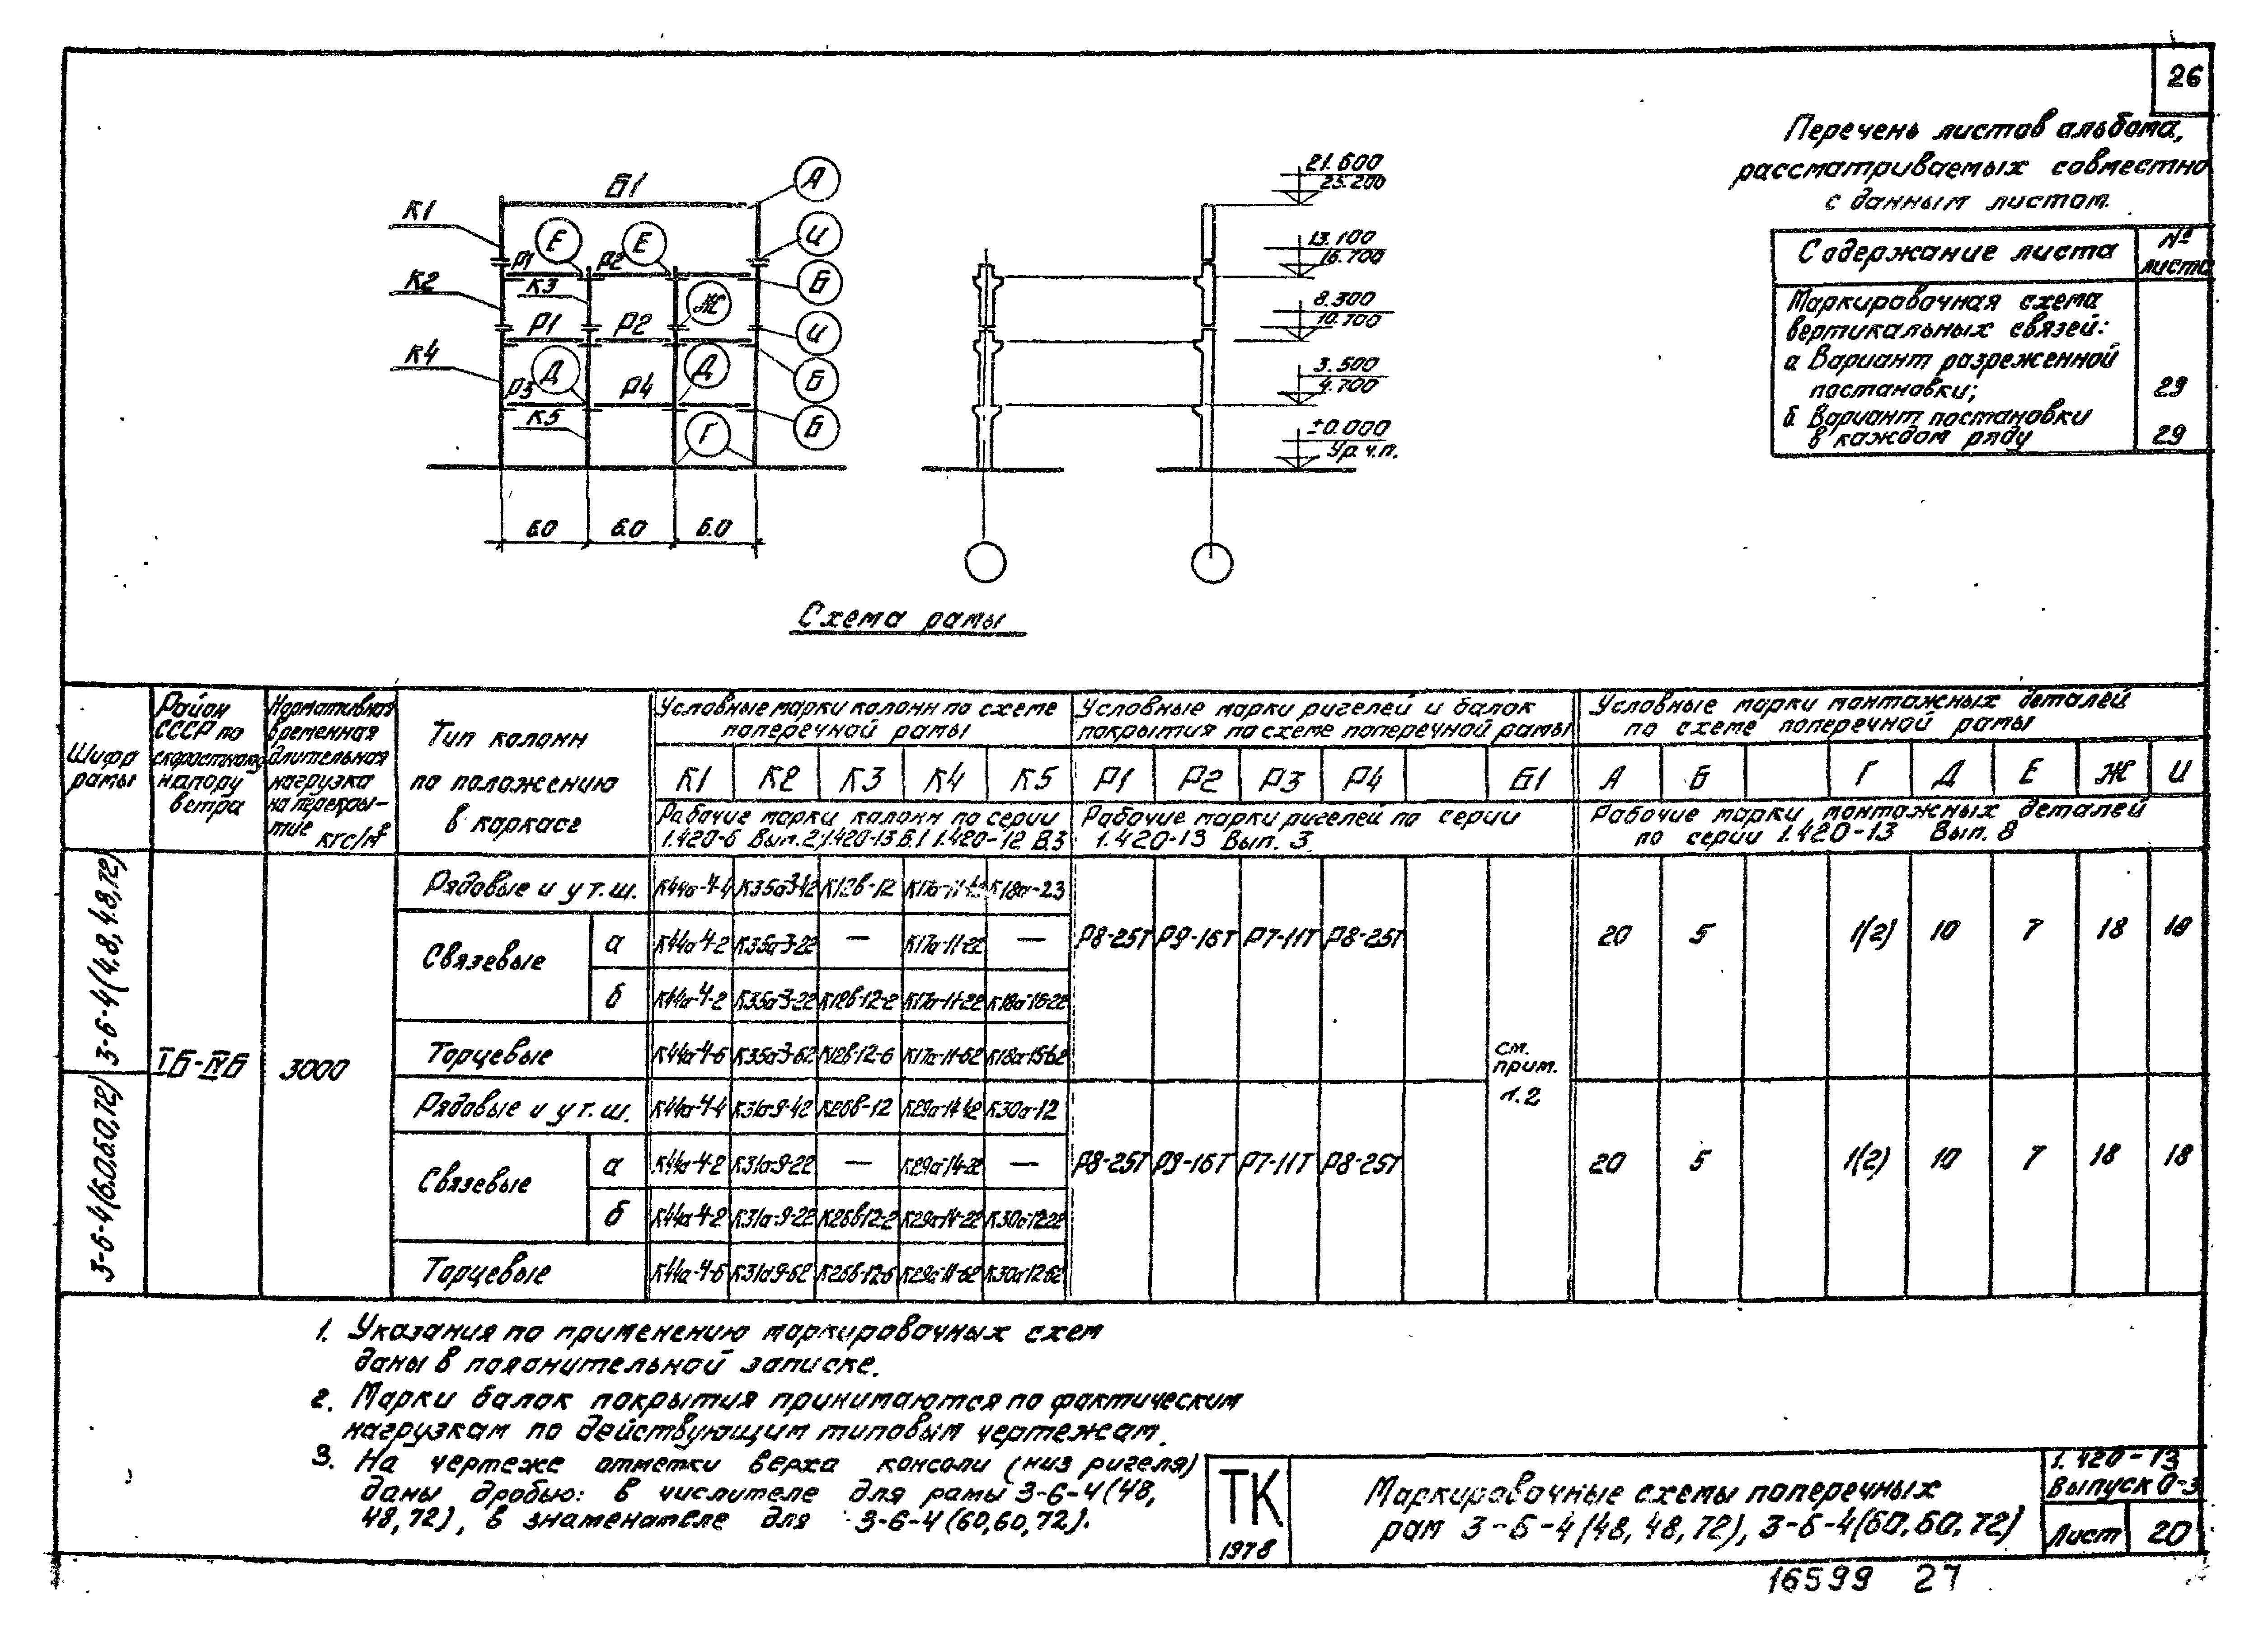 26
Перечень листов альбома,
рассматриваемых совместно
с данным листом.
Содержание листа
№ листа
Маркировочная схема
вертикальных связей:
а Вариант разреженной
постановки;
29
б. Вариант постановки
в каждом ряду
29
Б1
А
К1
И
Е
Е
Р1
Р2
Б
К2
К3
Ж
Р1
Р2
И
К4
Д
Д
Б
Р3
Р4
К5
Г
Б
6.0
6.0
6.0
21.600
25.200
13.100
16.700
8.300
10.700
3.500
4.700
±0.000
Ур.ч.п.
Схема рамы
Шифр рамы
Район СССР по скоростному напору ветра
Нормативная временная длительная нагрузка на перекрытие кгс/м²
Тип колонн
по положению
в каркасе
Условные марки колонн по схеме
поперечной рамы
К1 К2 К3 К4 К5
Рабочие марки колонн по серии
1.420-6 Вып.2; 1.420-13 В.1 1.420-12 В.3
Условные марки ригелей и балок
покрытия по схеме поперечной рамы
Р1 Р2 Р3 Р4 Б1
Рабочие марки ригелей по серии
1.420-13 Вып. 3
Условные марки монтажных деталей
по схеме поперечной рамы
А Б Г Д Е Ж И
Рабочие марки монтажных деталей
по серии 1.420-13 Вып. 8
3-6-4(4.8,4.8,7.2)
3-6-4(6.0,6.0,7.2)
IБ-IVБ
3000
Рядовые и у т.ш. К44а-4-4 К35а-3-42 К12в-12 К17а-11-42 К18а-23
Связевые
а К44а-4-2 К35а-3-22 — К17а-11-22 —
б К44а-4-2 К35а-3-22 К12в-12-2 К17а-11-22 К18а-15-22
Торцевые К44а-4-6 К35а-3-62 К12в-12-6 К17а-11-62 К18а-15-62
Р8-25Т Р9-16Т Р7-11Т Р8-25Т
20 5 1(2) 10 7 18 18
см.
прим.
1.2
Рядовые и у т.ш. К44а-4-4 К31а-9-42 К26в-12 К29а-14-42 К30а-12
Связевые
а К44а-4-2 К31а-9-22 — К29а-14-22 —
б К44а-4-2 К31а-9-22 К26в-12-2 К29а-14-22 К30а-12-22
Торцевые К44а-4-6 К31а-9-62 К26в-12-6 К29а-14-62 К30а-12-62
Р8-25Т Р9-16Т Р7-11Т Р8-25Т
20 5 1(2) 10 7 18 18
1. Указания по применению маркировочных схем
даны в пояснительной записке.
2. Марки балок покрытия принимаются по фактическим
нагрузкам по действующим типовым чертежам.
3. На чертеже отметки верха консоли (низ ригеля)
даны дробью: в числителе для рамы 3-6-4(48,
48,72), в знаменателе для 3-6-4(60,60,72).
ТК
1978
Маркировочные схемы поперечных
рам 3-6-4(48,48,72), 3-6-4(60,60,72)
1.420-13
Выпуск 0-3
Лист 20
16599 27